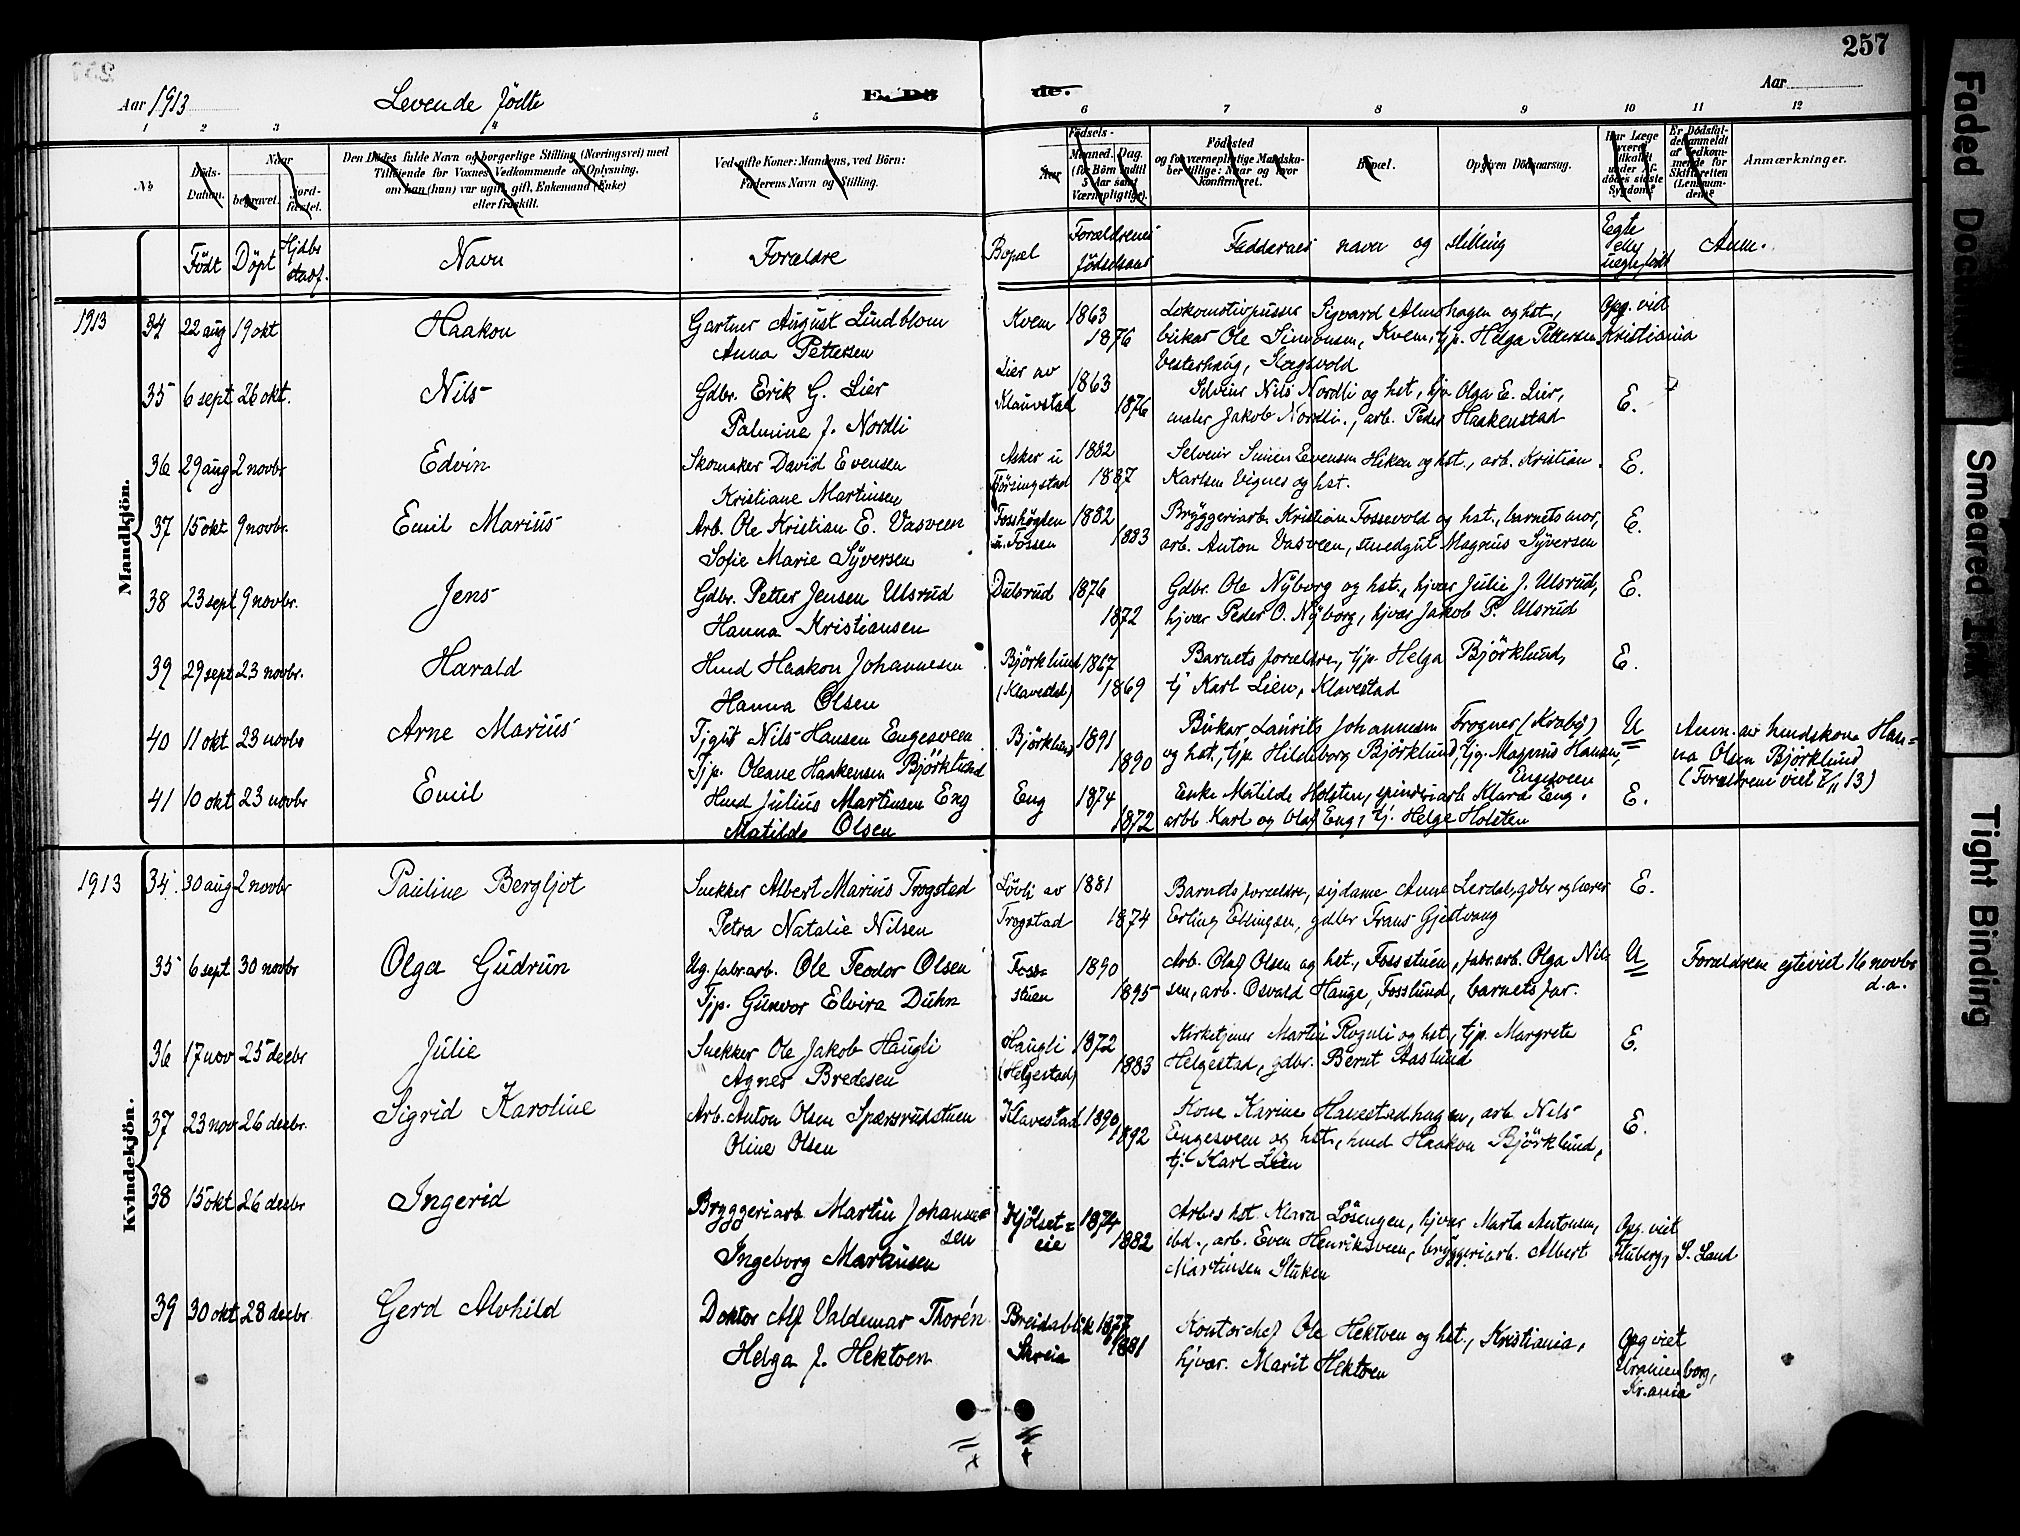 257
Aar 1913
Levende fødte
Aar
1 2 3 4 5 6 7 8 9 10 11 12
No
Døds-Datum.
Naar
begravet.
jord-fæstet.
Den Dødes fulde Navn og borgerlige Stilling (Næringsvei) med
Tilføiende for Voxnes Vedkommende af Oplysning,
om han (hun) var ugift, gift, Enkemand (Enke)
eller fraskilt.
Ved gifte Koner: Mandens, ved Børn:
Faderens Navn og Stilling.
Fødsels-
Aar
Maaned. Dag.
(for Børn indtil
5 Aar samt
Værnepligtige).
Fødested
og for værnepligtige Mandskaber tillige: Naar og hvor
konfirmeret.
Bopæl.
Opgiven Dødsaarsag.
Har Læge været tilkaldt under Afdødes sidste Sygdom?
Er Dødsfaldet anmeldt af Vedkommende for Skifteretten (Lensmanden)?
Anmærkninger.
Født Døpt Hjdbs stadf. Navn Forældre Bopæl Forældrenes fødselsaar Faddernes navn og stilling Egte eller uegte født Anm.
Mandkjön.
1913 34 22 aug 19 okt Haakon Gartner August Lindblom Kvem 1863 Lokomotivpusser Sigvard Almehagen og hst., Opg. viet
Anna Pettersen 1876 birkar Ole Simensen, Kvem, tjp. Helga Pettersen Kristiania
Vesterhaug, Skogsvold
35 6 sept 26 okt. Nils Gdbr. Erik G. Lier Lier av 1863 Selveier Nils Nordli og hst, hjv Olga E. Lier, E.
Palmine J. Nordli Klauvstad 1876 maler Jakob Nordli., arb. Peder Haakenstad
36 29 aug 2 novbr Edvin Skomaker David Evensen Asker u 1882 Selveier Simen Evensen Hiken og hst., arb. Kristian E.
Kristiane Martinsen 1887 Karlsen Vignes og hst.
37 15 okt 9 novbr. Emil Marius Arb. Ole Kristian E. Vasveen Fosshøgden 1882 Bryggeriarb. Kristian Fossevold og hst., barnets mor, E.
Sofie Marie Syversen u. Fossen 1883 arb. Anton Vasveen, smedgut Magnus Syversen
38 23 sept 9 novbr. Jens Gdbr. Petter Jensen Ulsrud Dulsrud 1876 Gdbr. Ole Nyborg og hst., hjvær Julie J. Ulsrud, E.
Hanna Kristiansen 1872 hjvær Peder O. Nyborg, hjvær Jakob P. Ulsrud
39 29 sept 23 novbr. Harald Hmd Haakon Johannesen Björklund 1867 Barnets forældre, tjp. Helga Björklund, E.
Hanna Olsen (Klavestad) 1869 tj Karl Lien, Klavestad
40 11 okt 23 novbr Arne Marius Tjgut Nils Hansen Engesveen Björklund 1891 Birkar Laurits Johannesen Frogner (Kraby) U Anm. av hmdskone Hanna Olsen Björklund
Tjp. Oleane Haakensen Björklund 1890 og hst., tjp. Hildeborg Björklund, tjg. Magnus Hansen, Engesveen (Forældrene viet 7/11 13)
41 10 okt 23 novbr Emil Hmd Julius Martinsen Eng Eng 1874 Enke Matilde Holsten, spinderiarb Klara Eng. E.
Matilde Olsen 1872 arbb Karl og Olaf Eng, tj. Helge Holsten
Kvindekjön.
1913 34 30 aug 2 novbr Pauline Bergljot Snekker Albert Marius Trogstad Løvli av 1881 Barnets forældre, sydame Anna Lerdal, gdbr og lærer E.
Petra Natalie Nilsen Trogstad 1874 Erling Ellingsen, gdbr Frans Gjestvang
35 6 sept 30 novbr Olga Gudrun Ug. fabr.arb. Ole Teodor Olsen Foss- 1890 Arb. Olaf Olsen og hst, Fossstuen, fabr.arb. Olga Nil- U Forældrene egteviet 16 novbr
Tjp. Gunvor Elvira Duhn stuen 1895 sen, arb. Osvald Hauge, Fosslund, barnets far. d.a.
36 17 nov 25 decbr Julie Snekker Ole Jakob Haugli Haugli 1872 Kirketjener Martin Rognli og hst, tjp. Margrete E.
Agnes Bredesen (Helgestad) 1883 Helgestad, gdbr. Bernt Aaslund
37 23 nov 26 decbr. Sigrid Karoline Arb. Anton Olsen Spærsrudstuen Klavestad 1890 Kone Karine Hanestadhagen, arb. Nils E.
Oline Olsen 1892 Engesveen og hst., hmd Haakon Björklund,
tj. Karl Lien
38 15 okt 26 decbr Ingerid Bryggeriarb. Martin Johannessen Kjölset=eie 1874 Arbes hst. Klara Løsengen, hjvær Marta Antonsen, Opg. viet
Ingeborg Martinsen 1882 ibd., arb. Even Henriksveen, bryggeriarb. Albert Fluberg, S. Land
Martinsen Stuken
39 30 okt 28 decbr Gerd Alvhild Doktor Alf Valdemar Thorén Breidablik 1877 Kontorchef Ole Hektoen og hst., Kristiania, Opg viet
Helga J. Hektoen Skreia 1881 hjvær. Marit Hektoen Uranienborg,
Kr.ania
Faded Document
Smeared Ink
Tight Binding